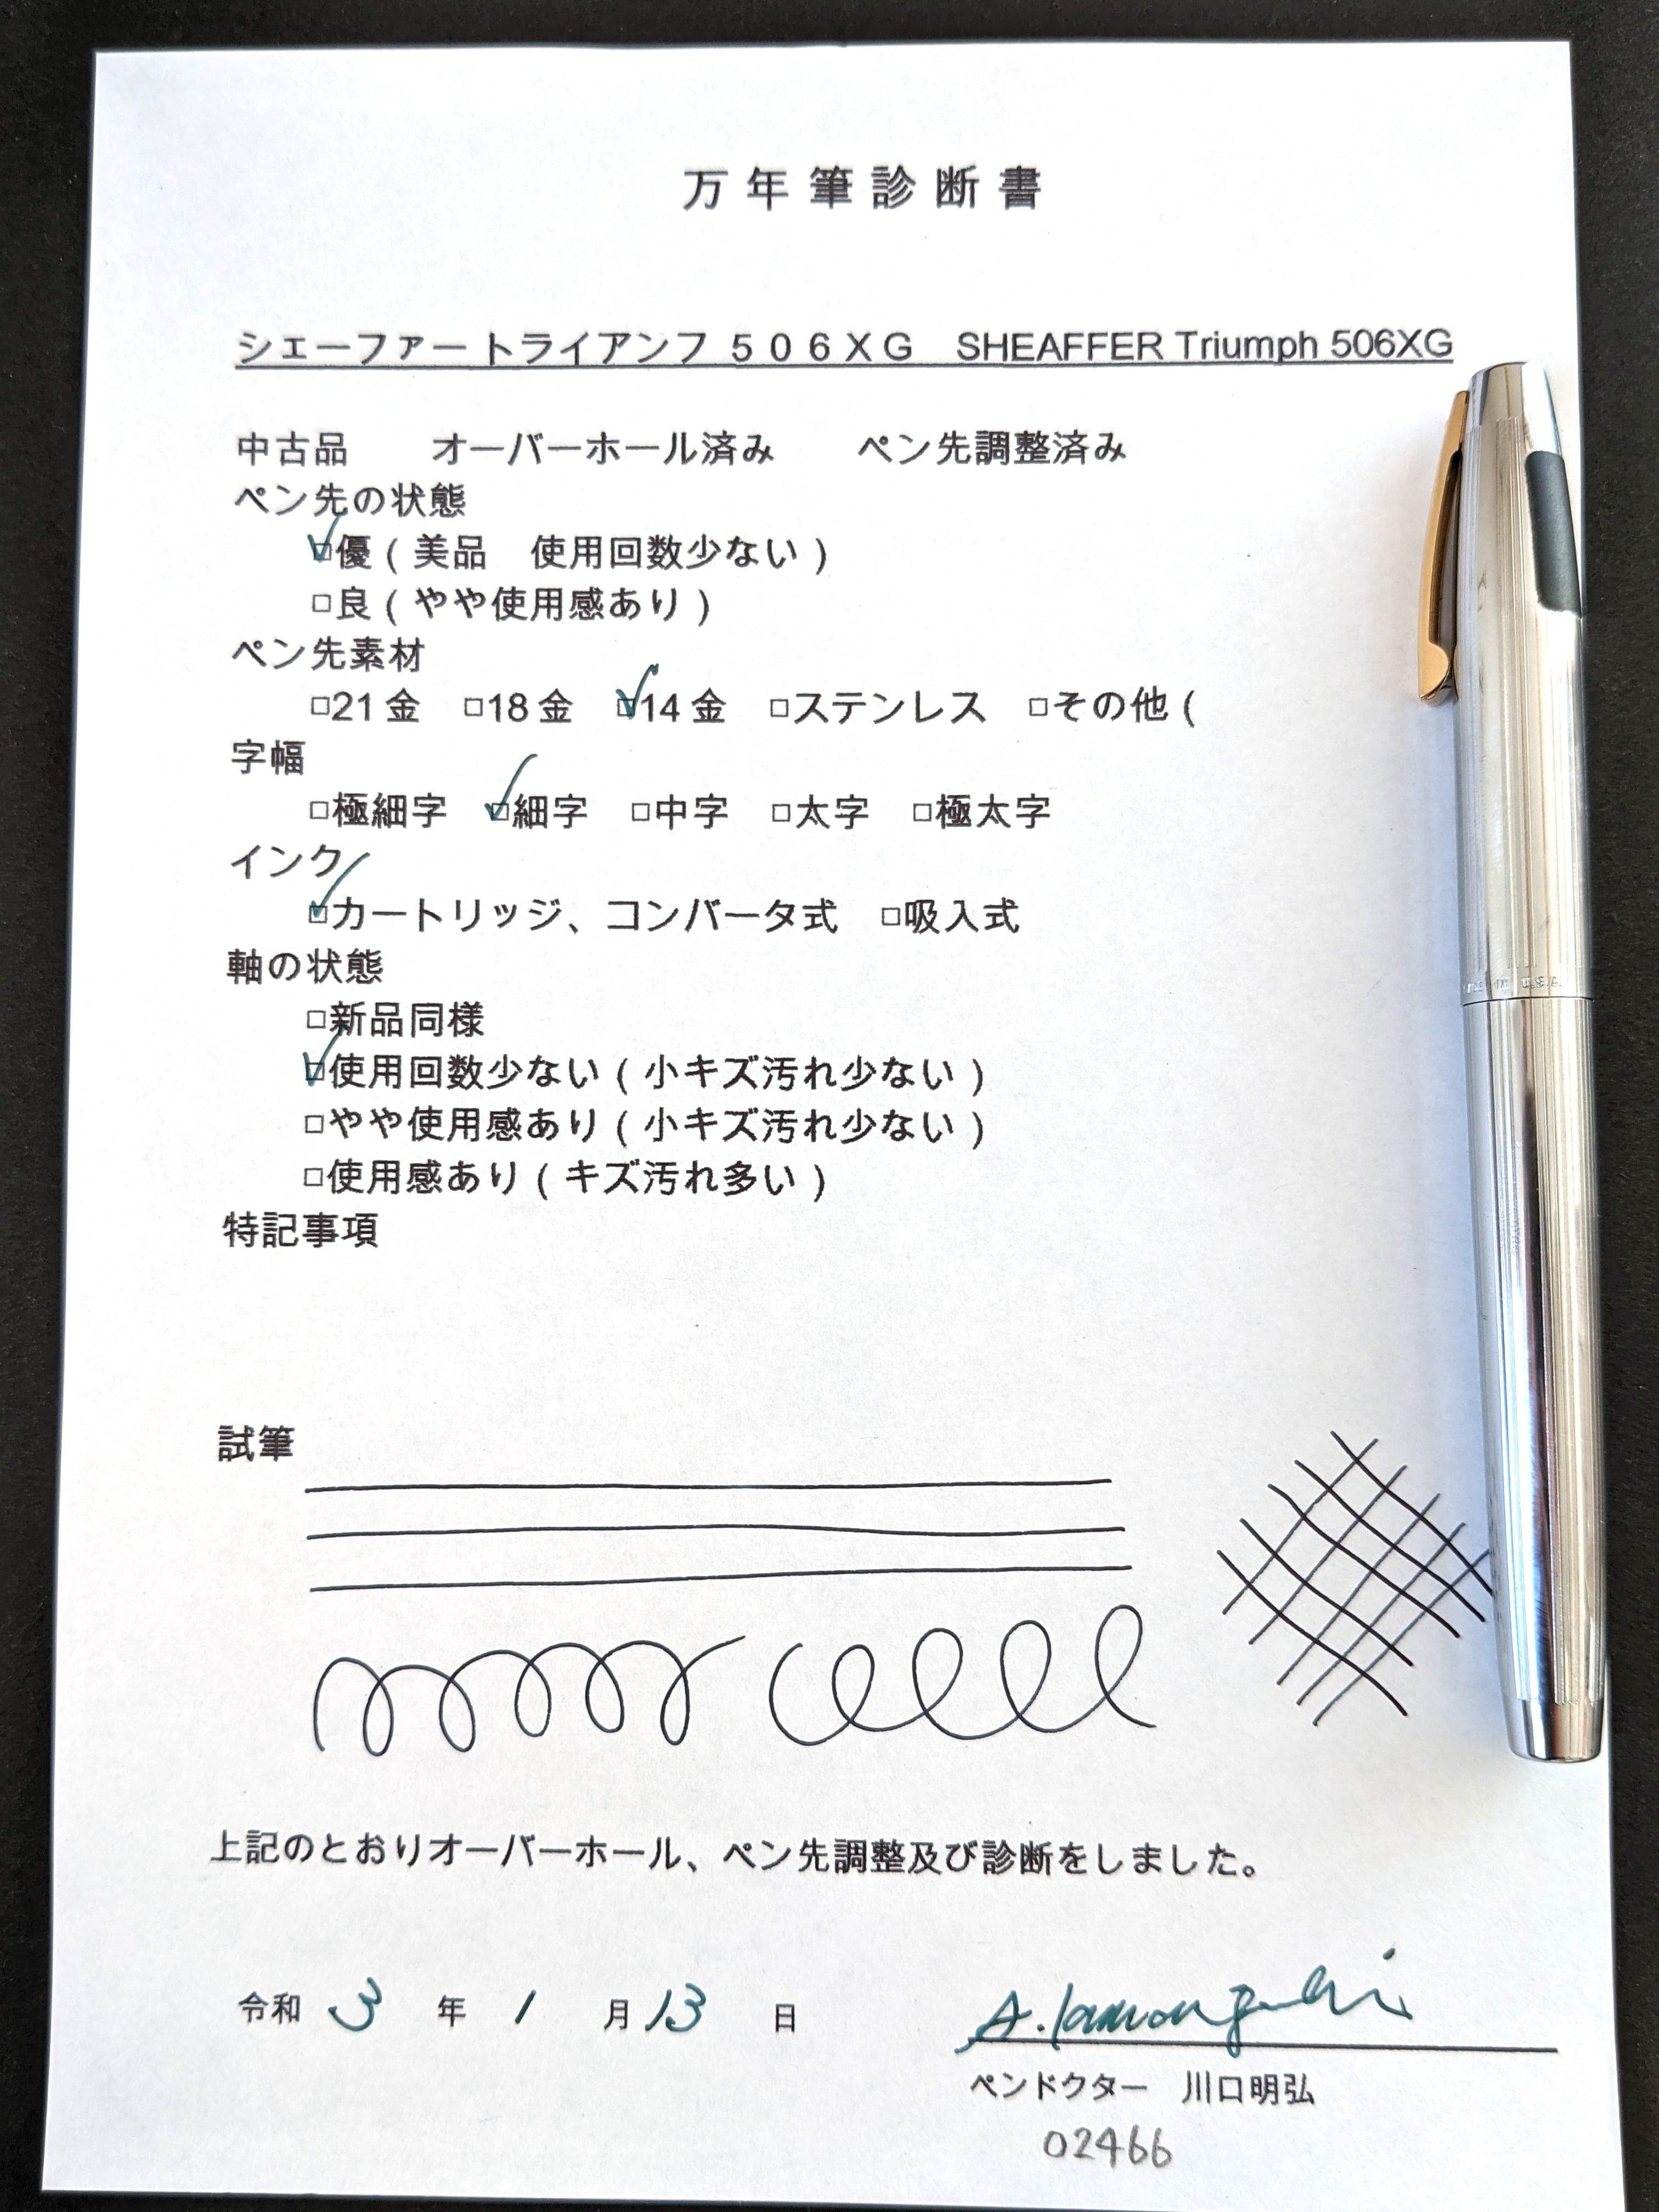 万年筆診断書
シェーファー トライアンフ ５０６ＸＧ　SHEAFFER Triumph 506XG
中古品　　オーバーホール済み　　ペン先調整済み
ペン先の状態
☑優（美品　使用回数少ない）
□良（やや使用感あり）
ペン先素材
□21金　□18金　☑14金　□ステンレス　□その他（
字幅
□極細字　☑細字　□中字　□太字　□極太字
インク
☑カートリッジ、コンバータ式　□吸入式
軸の状態
□新品同様
☑使用回数少ない（小キズ汚れ少ない）
□やや使用感あり（小キズ汚れ少ない）
□使用感あり（キズ汚れ多い）
特記事項
試筆
上記のとおりオーバーホール、ペン先調整及び診断をしました。
令和 3 年 1 月 13 日
A. Kawaguchi
ペンドクター　川口明弘
02466
U.S.A.